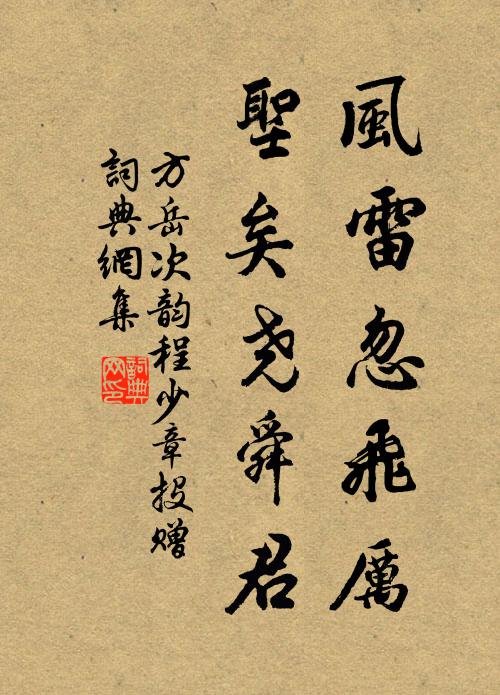 風雷忽飛厲
聖矣尧舜君
方岳次韵程少章投赠
詞典網集
詞典
网印